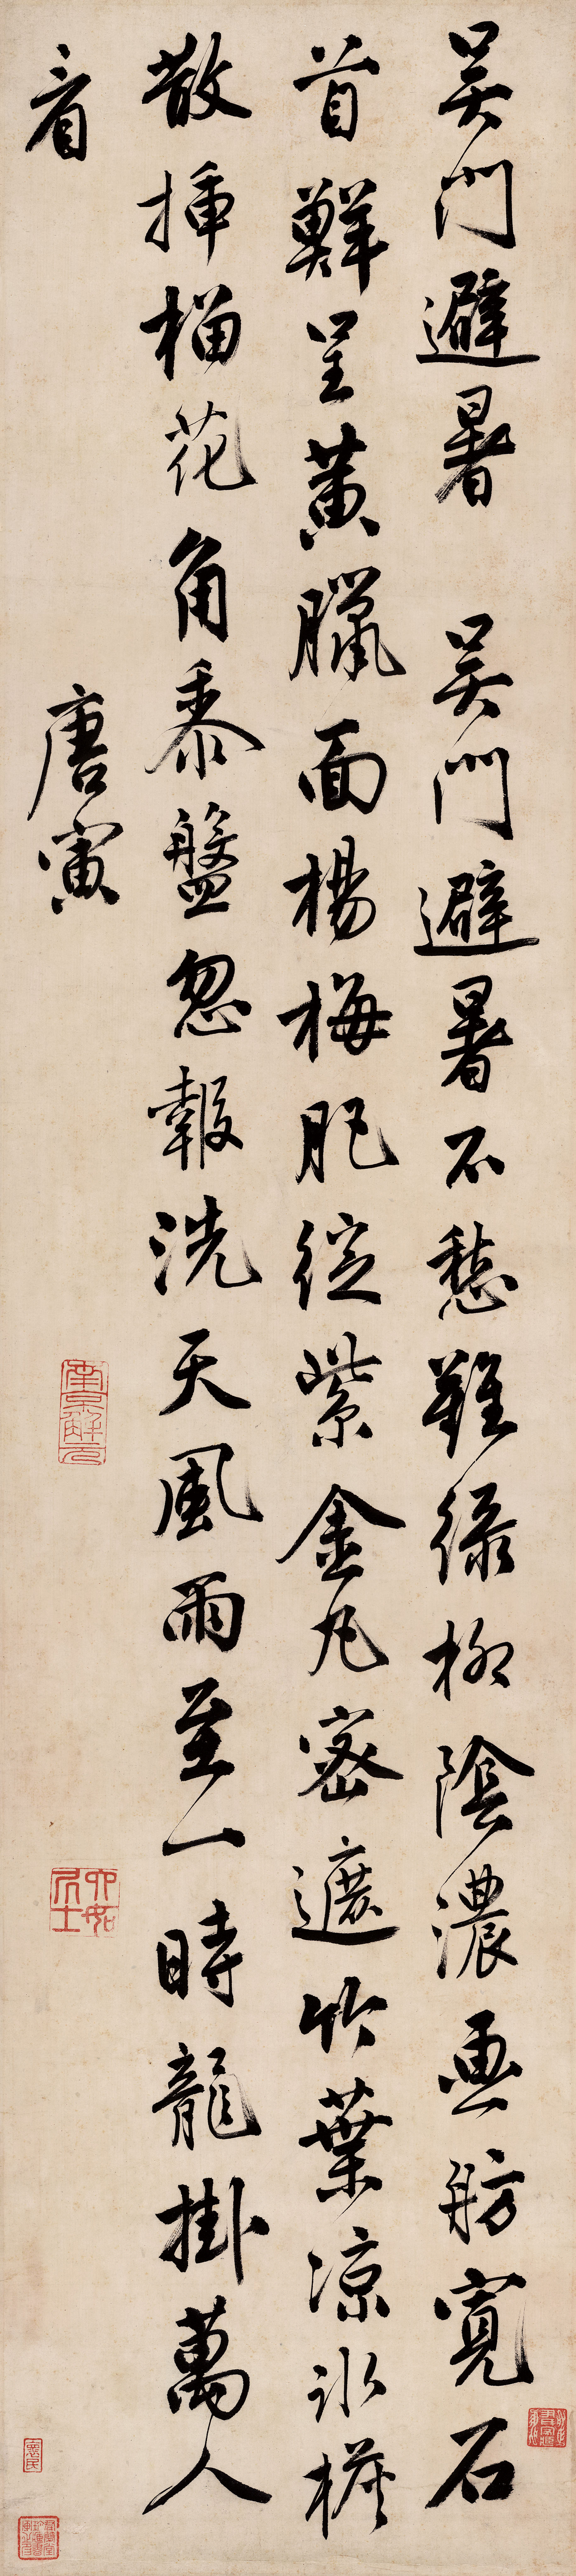 吴門避暑 吴門避暑不愁難綠柳陰濃画舫寬石
首鮮呈黃臘面楊梅肥綻紫金丸密遮竹葉凉冰
散插榴花角黍盤忽報洗天風雨至一時龍掛萬人
看
唐寅
南京解元
六如居士